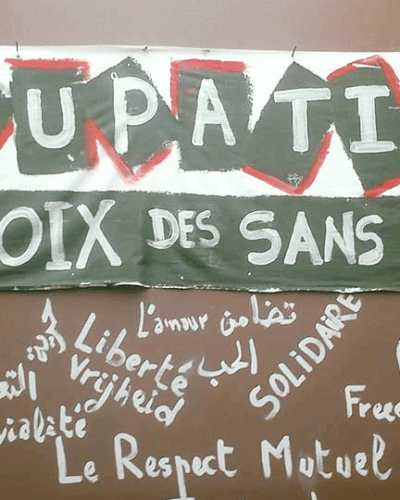 UPATI
OIX DES SANS
L'amour تضامن
Liberté الحب SOLiDAiRE
Vrijheid
Free
ialité
Le Respect Mutuel